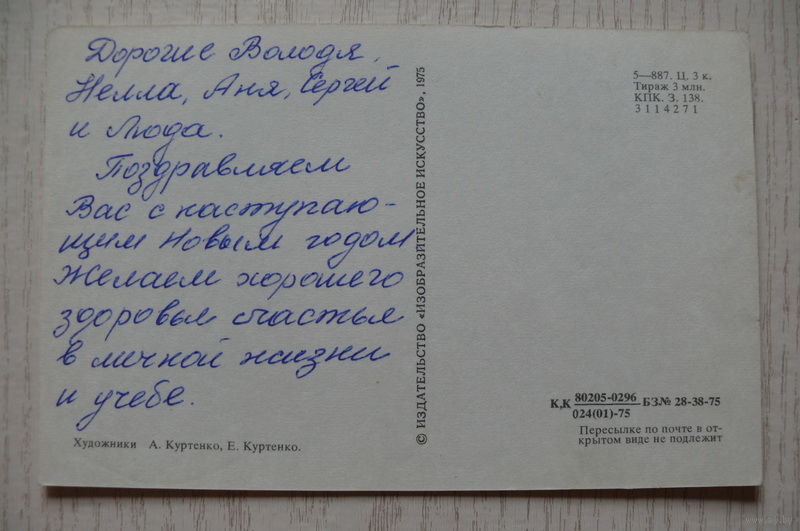 Дорогие Володя,
Нелла, Аня, Сергей
и Люда.
Поздравляем
Вас с наступаю-
щим Новым годом
Желаем хорошего
здоровья счастья
в личной жизни
и учебе.
Художники А. Куртенко, Е. Куртенко.
© ИЗДАТЕЛЬСТВО «ИЗОБРАЗИТЕЛЬНОЕ ИСКУССТВО», 1975
5—887. Ц. 3 к.
Тираж 3 млн.
КПК. З. 138.
3114271
К,К 80205-0296 БЗ№ 28-38-75
024(01)-75
Пересылке по почте в от-
крытом виде не подлежит